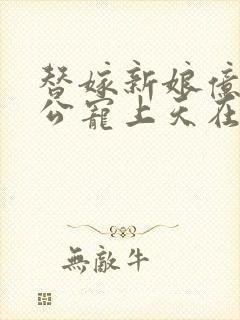 替嫁新娘億
公寵上天在
無敵牛